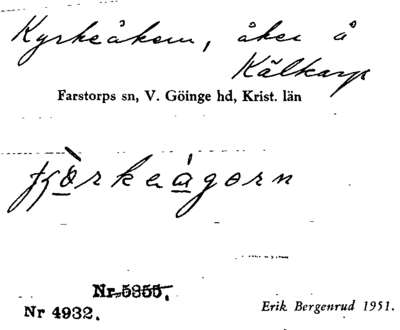 Kyrkeåkern, åker å
Kälkarp
Farstorps sn, V. Göinge hd, Krist. län
fjòrkeàgorn
Nr 5355.
Nr 4932.
Erik Bergenrud 1951.